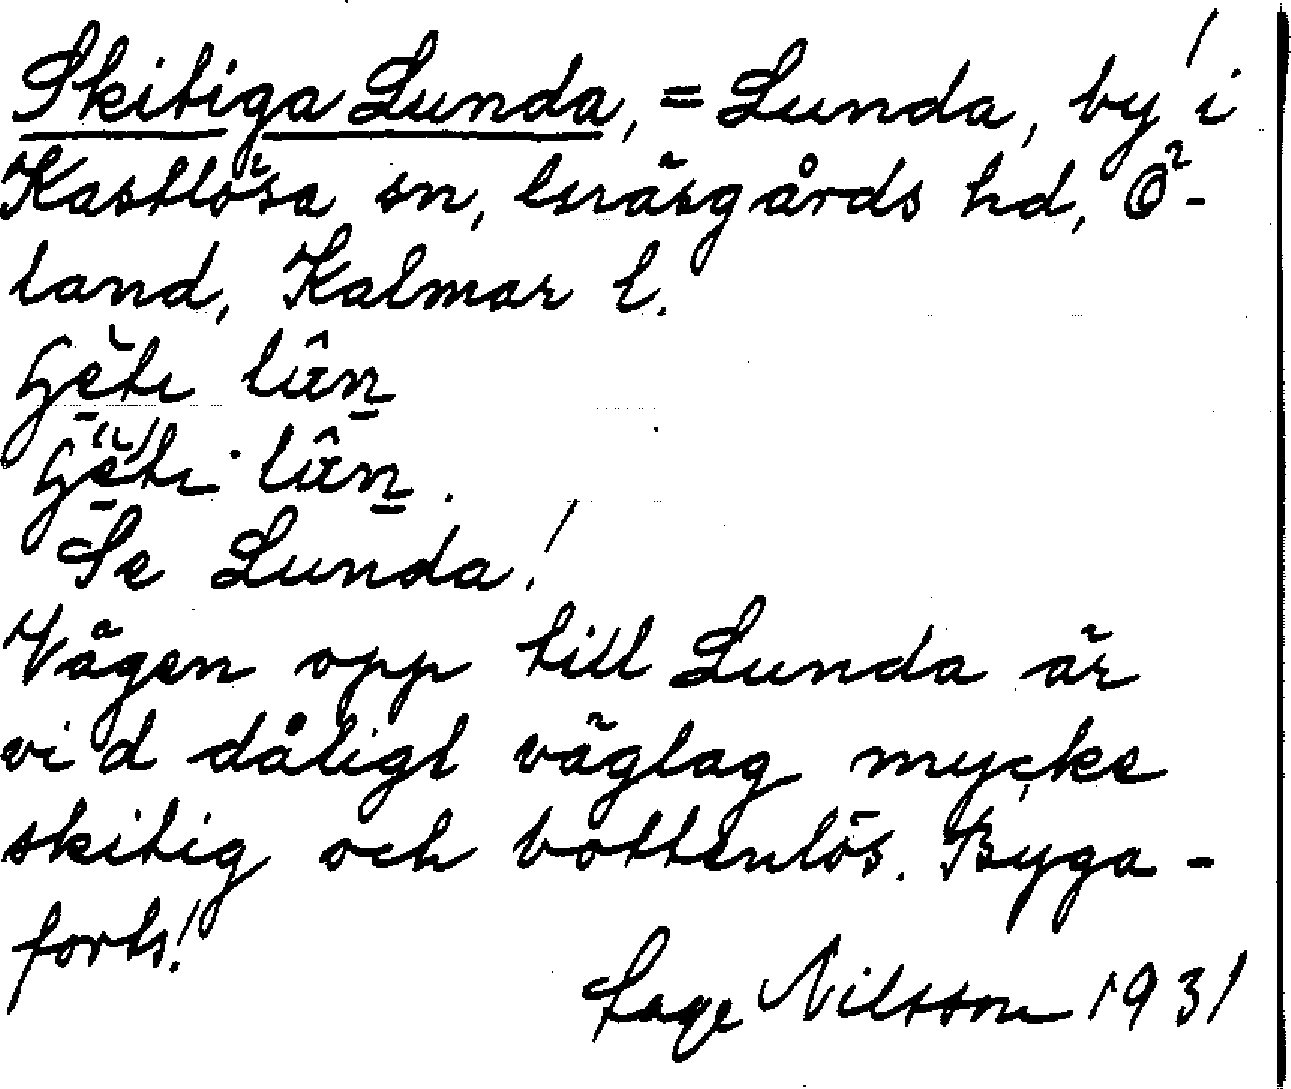 Skitiga Lunda, = Lunda, by i
Kastlösa sn, Gräsgårds hd, Ö-
land, Kalmar l.
Se Lunda!
Vägen opp till Lunda är
vid dåligt väglag mycke
skitig och bottenlös. Byga -
forts!
Sage Nilsson 1931